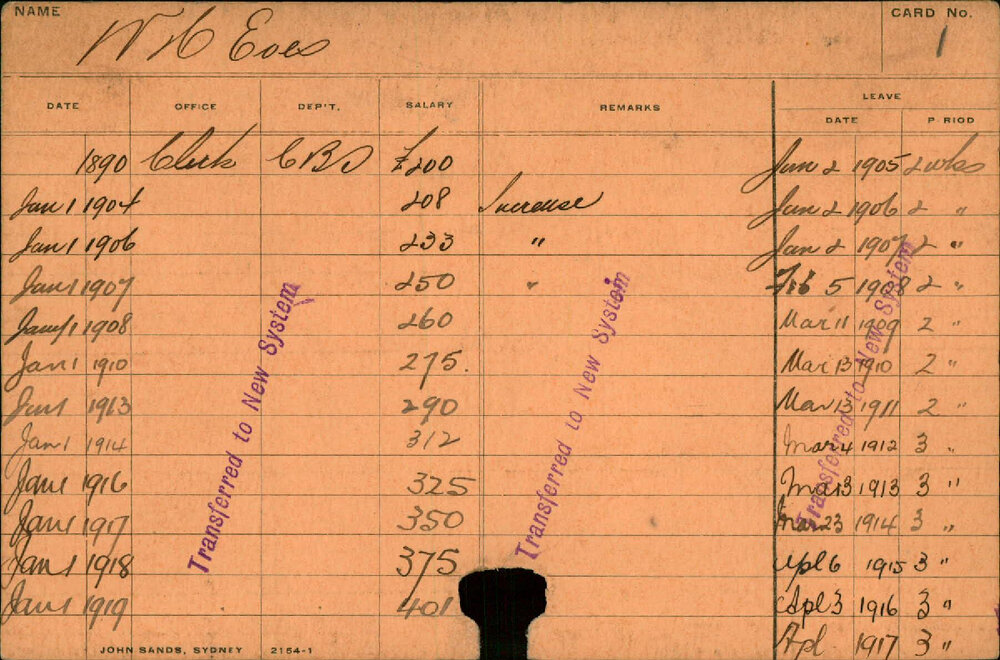 NAME W H Eves CARD No. 1
DATE OFFICE DEP'T. SALARY REMARKS LEAVE
DATE P RIOD
1890 Clerk CBD £200 Jan 2 1905 2 wks
Jan 1 1904 208 Increase Jan 2 1906 2 "
Jan 1 1906 233 " Jan 2 1907 2 "
Jan 1 1907 250 " Feb 5 1908 2 "
Jany 1 1908 260 Mar 11 1909 2 "
Jan 1 1910 275. Mar 13 1910 2 "
Jan 1 1913 290 Mar 13 1911 2 "
Jan 1 1914 312 Mar 4 1912 3 "
Jan 1 1916 325 Mar 3 1913 3 "
Jan 1 1917 350 Mar 23 1914 3 "
Jan 1 1918 375 Apl 6 1915 3 "
Jan 1 1919 401 Apl 3 1916 3 "
Apl 1917 3 "
Transferred to New System
Transferred to New System
Transferred to New System
JOHN SANDS, SYDNEY 2154-1